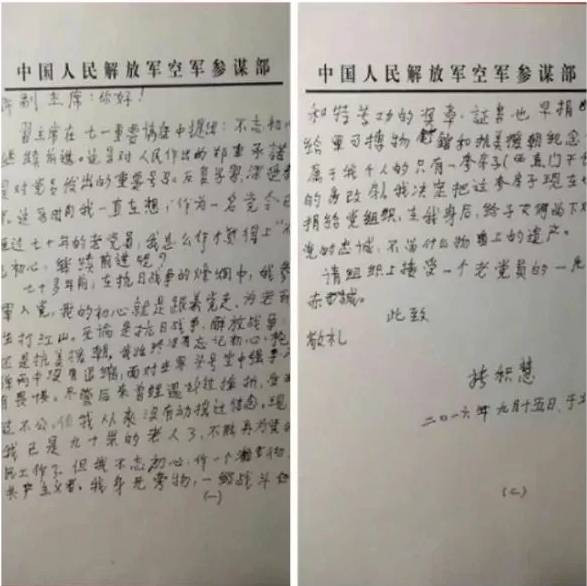 中国人民解放军空军参谋部
许副主席:你好!
习主席在七一重要讲话中提出:不忘初心
继续前进。这是对人民作出的郑重承诺
是对党员发出的重要号召。反复学习,深受
这多时间我一直在想,作为一名党龄已
超过七十年的老党员,我怎么作才算得上“不
忘初心,继续前进”呢?
七十多年前,在抗日战争的烽烟中,我参
军入党,我的初心就是跟着党走,为老百
姓打江山。无论是抗日战争、解放战争、
还是抗美援朝,我始终没有忘记初心,枪
弹雨中没有退缩,面对 头号空中强手
有畏惧。尽管后来曾经遇到过挫折,受
过不公,但我从来没有动摇过信念。现
我已是九十岁的老人了,不能再为党
工作了。但我不忘初心,作一个
共产主义者。我身无旁物,一级战斗
(一)
中国人民解放军空军参谋部
和特等功的奖章、证书也早捐
给军事博物馆和抗美援朝纪念
属于我个人的只有一套房子(西直门干休
的房改房),我决定把这套房子现在
捐给党组织,在我身后,给子女留尚下对
党的忠诚,不留什么物质上的遗产。
请组织上接受一个老党员的一片
赤诚。
此致
敬礼
韩积慧
二〇一六年九月十五日于北
(二)